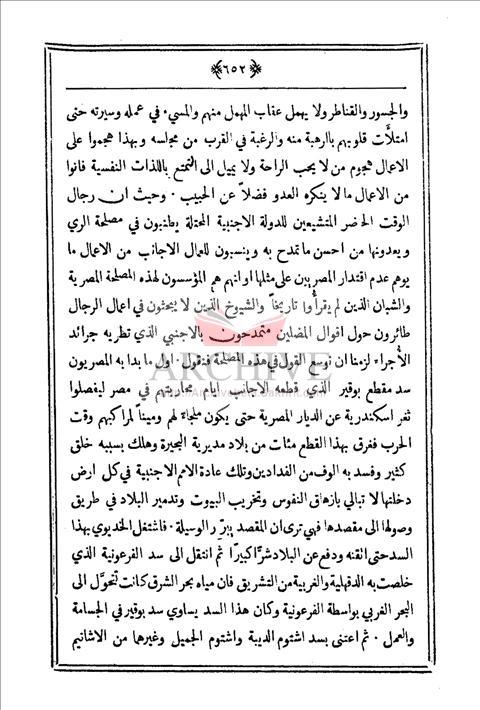 ﴿٦٥٢﴾
والجسور والقناطر ولا يهمل عقاب المهمل منهم والمسيء في عمله وسيرته حتى
امتلأت قلوبهم بالرهبة منه والرغبة في القرب من مجلسه وبهذا هجموا على
الاعمال هجوم من لا يحب الراحة ولا يميل الى التمتع باللذات النفسية فاتوا
من الاعمال ما لا ينكره العدو فضلاً عن الحبيب ٠ وحيث ان رجال
الوقت الحاضر المتشيعين للدولة الاجنبية المحتلة يطنبون في مصلحة الري
ويعدونها من احسن ما تمدح به وينسبون للعمال الاجانب من الاعمال ما
يوهم عدم اقتدار المصريين على مثلها او انهم هم المؤسسون لهذه المصلحة المصرية
والشبان الذين لم يقرأوا تاريخاً والشيوخ الذين لا يبحثون في اعمال الرجال
طائرون حول اقوال المضلين متمدحون بالاجنبي الذي تطريه جرائد
الأجراء لزمنا ان نوسع القول في هذه المصلحة فنقول ٠ اول ما بدا به المصريون
سد مقطع بوقير الذي قطعه الاجانب ايام محاربتهم في مصر ليفصلوا
ثغر اسكندرية عن الديار المصرية حتى يكون ملجاء لهم وميناً لمراكبهم وقت
الحرب فغرق بهذا القطع مئات من بلاد مديرية البحيرة وهلك بسببه خلق
كثير وفسد به الوف من الفدادين وتلك عادة الامم الاجنبية في كل ارض
دخلتها لا تبالي بازهاق النفوس وتخريب البيوت وتدمير البلاد في طريق
وصولها الى مقصدها فهي ترى ان المقصد يبرّر الوسيلة ٠ فاشتغل الخديوي بهذا
السد حتى اتقنه ودفع عن البلاد شرًّا كبيرًا ثم انتقل الى سد الفرعونية الذي
خلصت به الدقهلية والغربية من التشريق فان مياه بحر الشرق كانت تتحوَّل الى
البحر الغربي بواسطة الفرعونية وكان هذا السد يساوي سد بوقير في الجسامة
والعمل ٠ ثم اعتنى بسد اشتوم الديبة واشتوم الجميل وغيرها من الاشاتيم
ARCHIVE